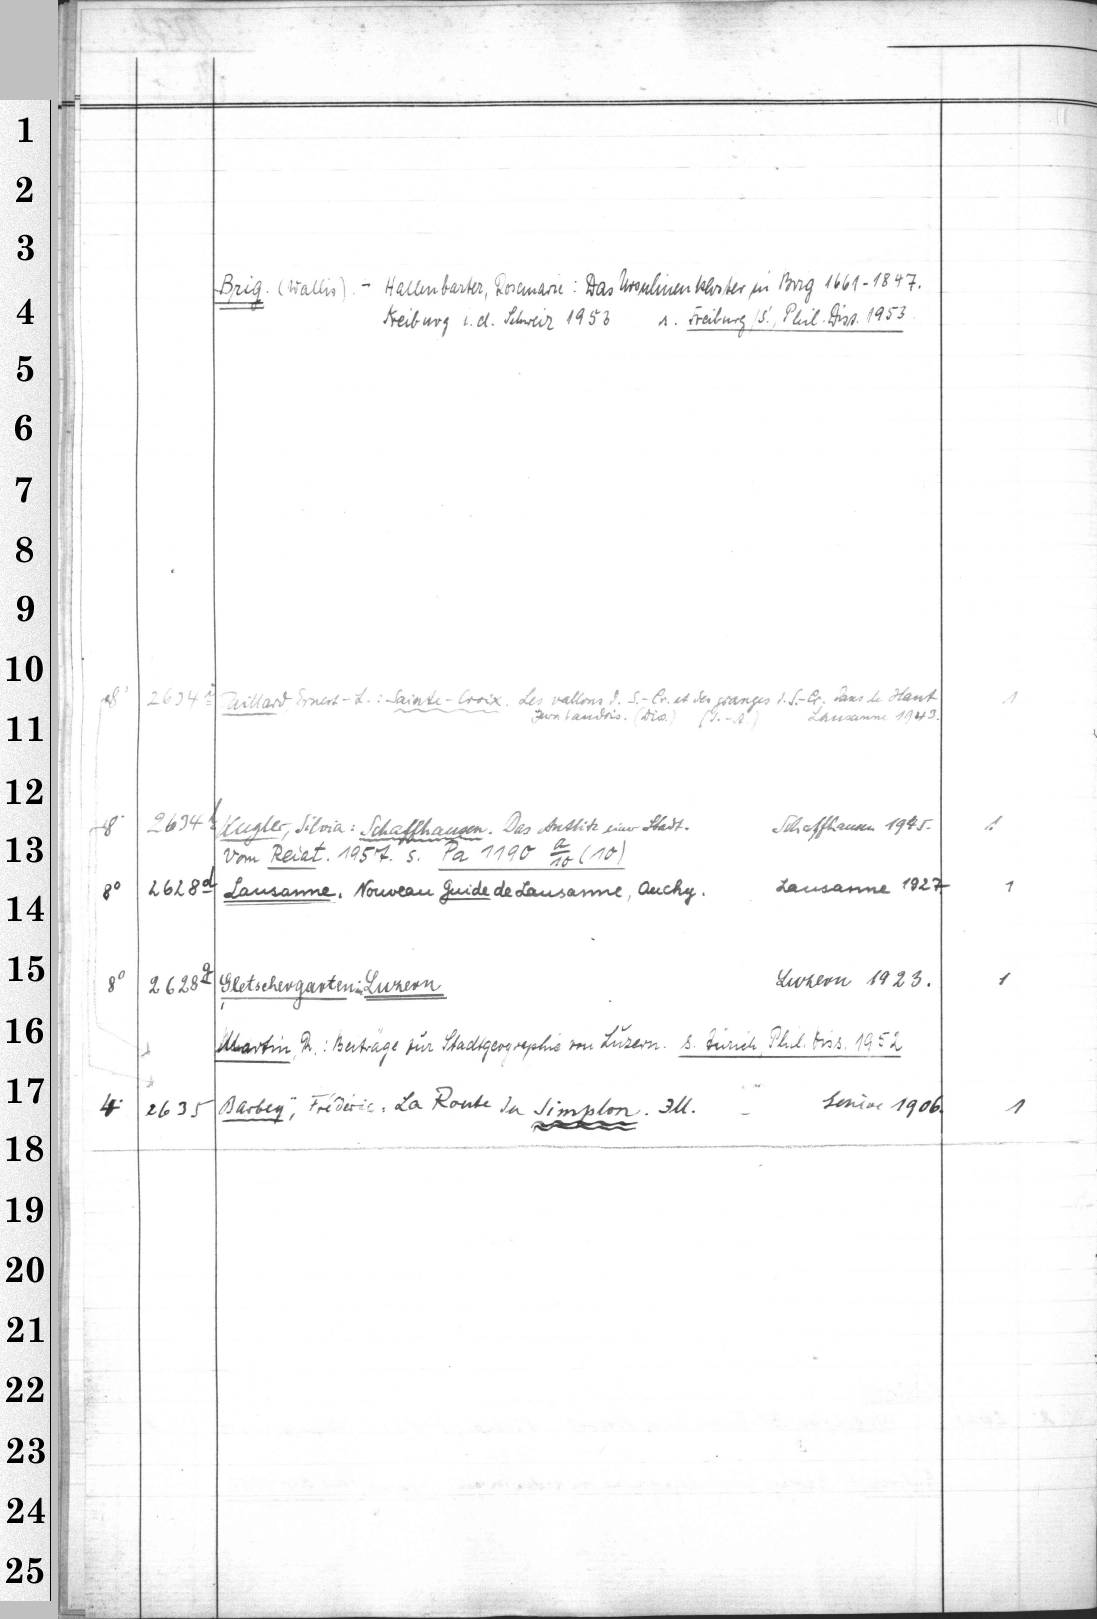 1
2
3
Brig. (Wallis). - Hallenbarter, Rosmarie: Das Ursulinenkloster in Brig 1661-1847.
4
Freiburg i. d. Schweiz 1953 s. Freiburg, S., Phil. Diss. 1953
5
6
7
8
9
10
8° 2634 Paillard Ernest-L.: Sainte-Croix. Les vallons d. S.-Cr. et des granges d. S.-Cr. dans le Haut 1
11
Jura Vaudois. (Diss.) Lausanne 1943.
12
8° 2634 Kugler, Silvia: Schaffhausen. Das Antlitz einer Stadt. Schaffhausen 1945. 1.
13
Vom Reiat. 1957. s. Pa 1190 a/10 (10)
8° 2628 d Lausanne. Nouveau Guide de Lausanne, Ouchy. Lausanne 1927 1
14
15
8° 2628 g Gletschergarten: Luzern Luzern 1923. 1
16
Martin, R.: Beiträge zur Stadtgeographie von Luzern. s. Zürich, Phil. Diss. 1952
17
4° 2635 Barbey, Frédéric. La Route du Simplon. Ill. Genève 1906. 1
18
19
20
21
22
23
24
25